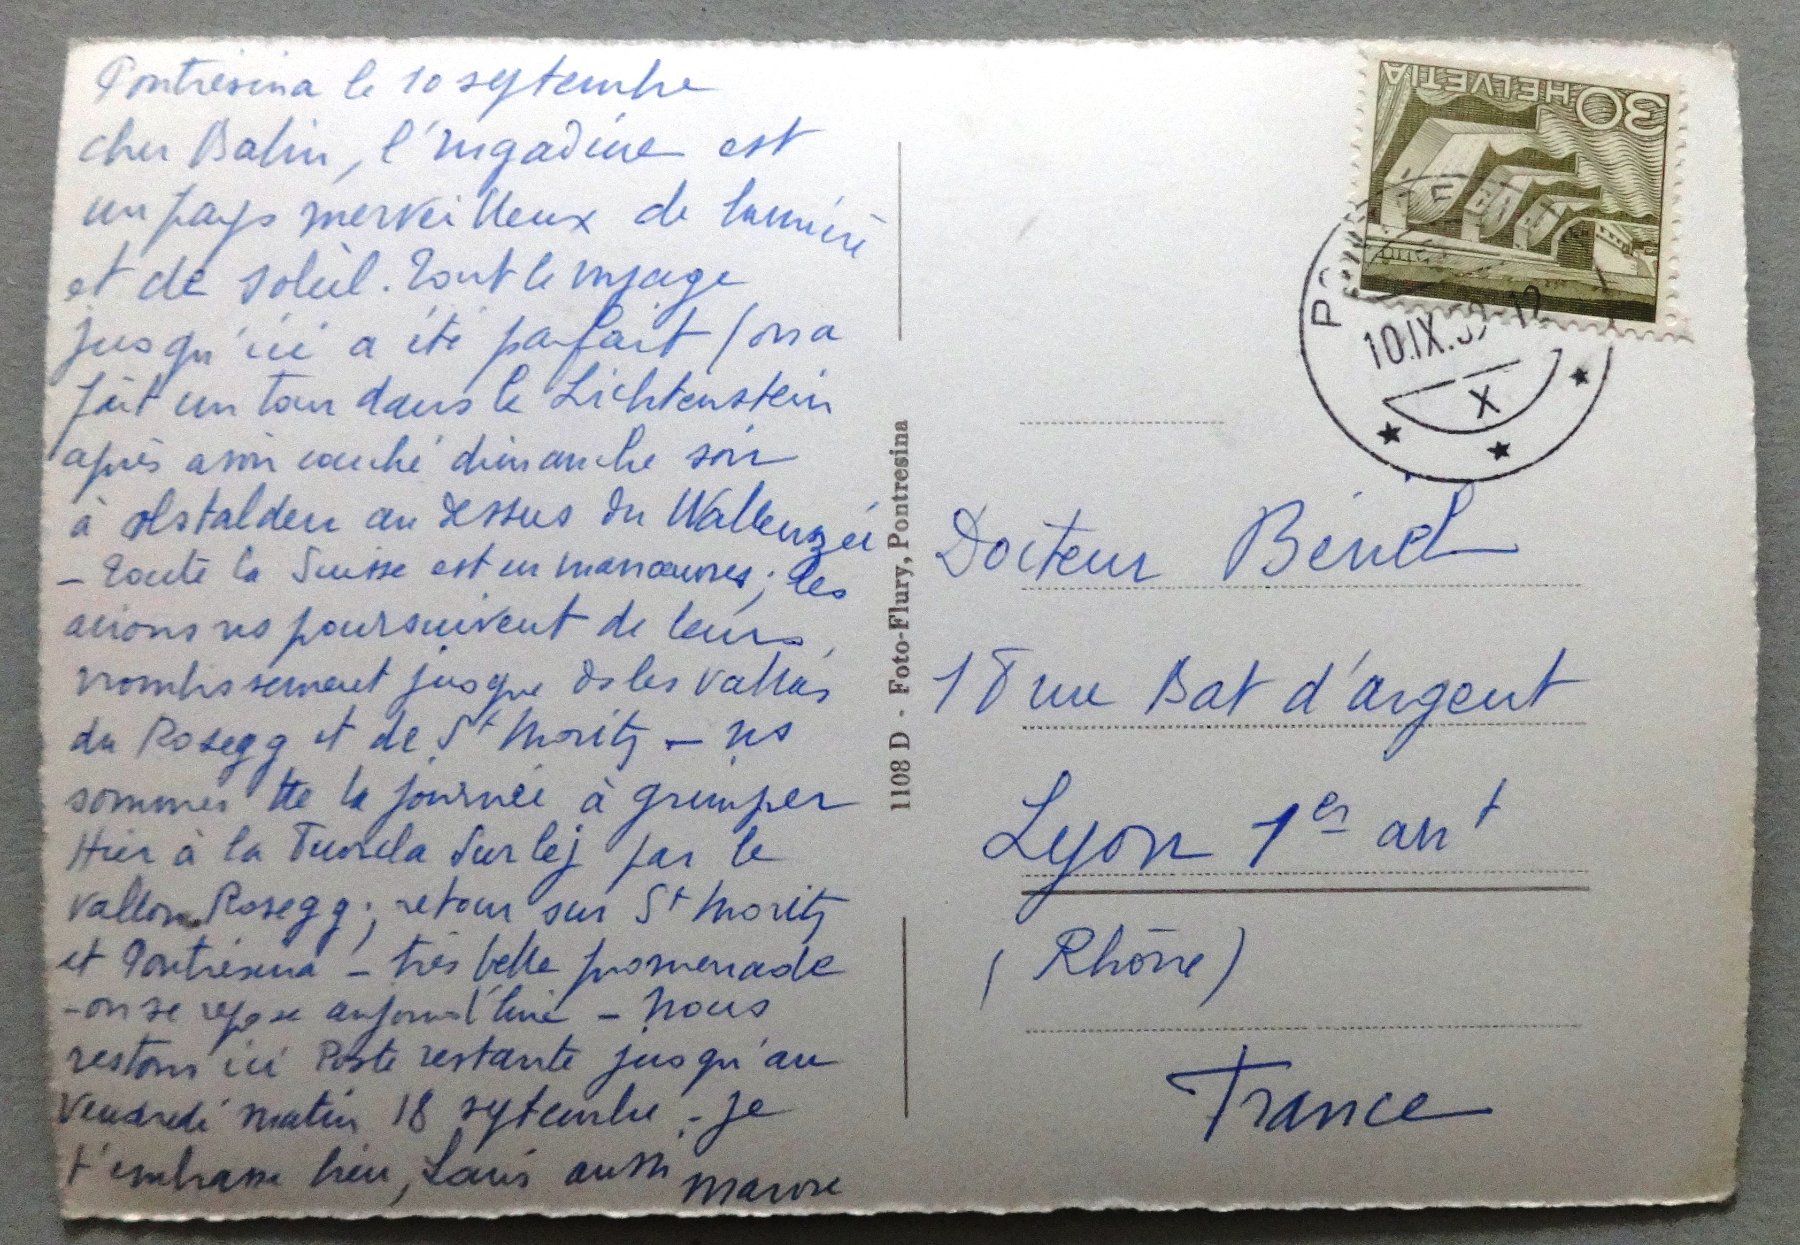 Pontrésina le 10 septembre
cher Balin, l'Engadine est
un pays merveilleux de lumière
et de soleil. Tout le voyage
jusqu'ici a été parfait (on a
fait un tour dans le Lichtenstein
après avoir couché dimanche soir
à Obstalden au dessus du Wallenzée
- Toute la Suisse est en manœuvres; les
avions ns poursuivent de leurs
vrombissement jusque ds les vallées
du Rosegg et de St Moritz - ns
sommes tte la journée à grimper
Hier à la Fuorcla Surlej par le
vallon Rosegg; retour sur St Moritz
et Pontrésina - très belle promenade
- on se repose aujourd'hui - Nous
restons ici Poste restante jusqu'au
Vendredi matin 18 septembre - Je
t'embrasse bien, Louis aussi
1108 D · Foto-Flury, Pontresina
HELVETIA
30
10.IX.
12
X
Docteur
18 rue Bat d'argent
Lyon 1er arrt
(Rhône)
France